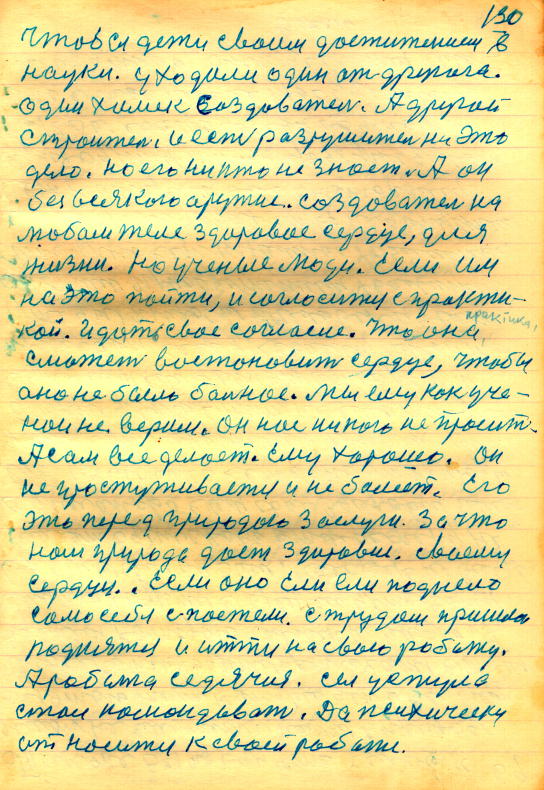 130
Чтов ся дети своим достижением в
науки. уходили один от другога.
один химек создовател. А другой
строител. и ест разрушител на это
дело. но его никто не знает. А он
без всякого аружие. создовател на
любом теле здоровое сердце, для
жизни. Но ученые люди. Если им
на это пойти, и согласитц с практи-
кой. И дать свое согласие. Что она
практика,
сможет востоновит сердце, чтобы
оно не было болное. Мы ему как уче-
нои не верим. Он нас никого не просит.
А сам все делает. Ему хорошо. Он
не простуживаетц и не болеет. Его
это перед природою заслуги. За что
нам природа дает здоровие. своему
сердцу. Если оно Ели ели поднело
само себя с постели. с трудом пришлос
поднятся и итти на свою работу.
А работа седячия. сел у стула
стал командават. Да психически
относитц к своей работи.